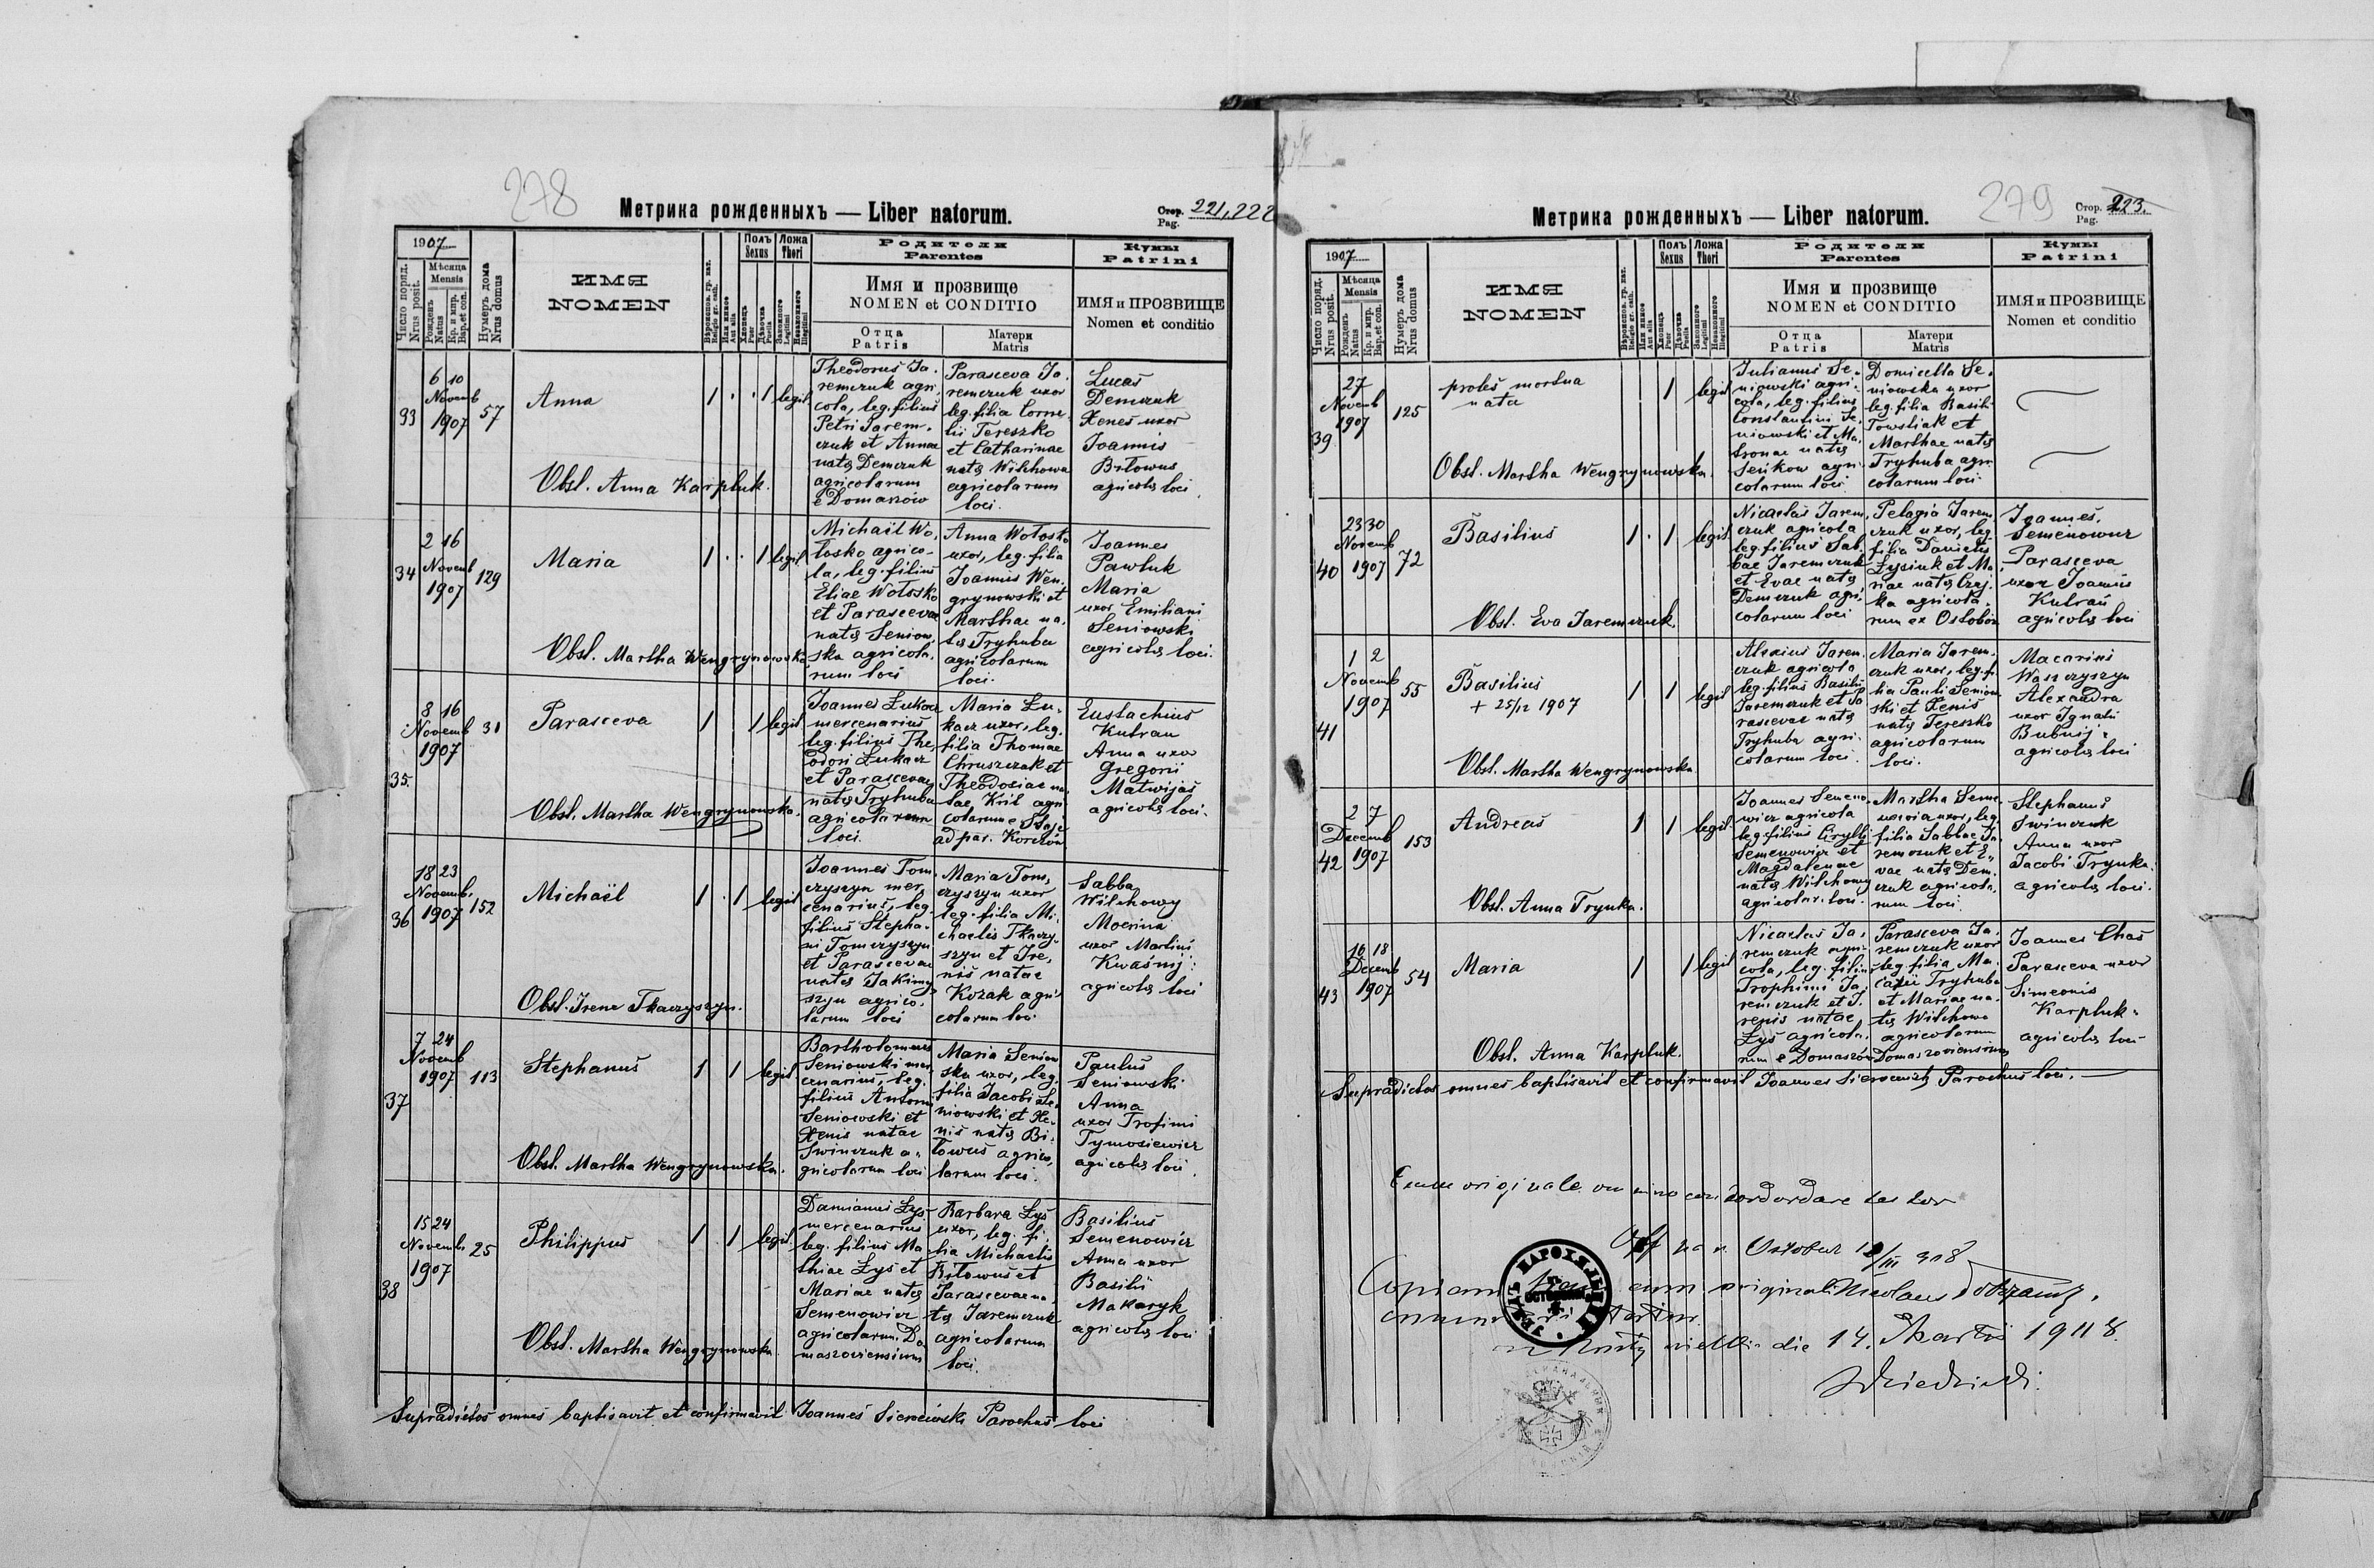 278
Метрика рожденныхъ — Liber natorum.
Стор. Pag. 221, 222
1907
Число поряд. Nrus posit.
Мѣсяца Mensis
Рожденъ Natus
Кр. и мир. Bap. et con.
Нумеръ дома Nrus domus
ИМЯ
NOMEN
Вѣроисповд. гр. кат. Religio gr. cath.
Или инное Aut alia
Полъ Sexus
Хлопецъ Puer
Дѣвочка Puella
Ложа Thori
Законного Legitimi
Незаконного Illegitimi
Родители
Parentes
Имя и прозвище
NOMEN et CONDITIO
Отца Patris
Матери Matris
Кумы
Patrini
ИМЯ и ПРОЗВИЩЕ
Nomen et conditio
33
6 10
Novemb
1907
57
Anna
1 . . 1 legit
Obst. Anna Karpluk.
Theodorus Ja-
remczuk agri-
cola, leg. filius
Petri Jarem-
czuk et Annae
natae Demczuk
agricolarum
e Domaszów
Parasceva Ja-
remczuk uxor
leg. filia Corne-
lii Tereszko
et Catharinae
natae Wilchowa
agricolarum
loci.
Lucas
Demczuk
Xenes uxor
Joannis
Biłowus
agricolae loci.
34
2 16
Novemb
1907
129
Maria
1 . . 1 legit
Obst. Martha Wengrynowska
Michaël Wo-
łosko agrico-
la, leg. filius
Eliae Wołosko
et Parascevae
natae Seniow-
ska agricola-
rum loci
Anna Wołosko
uxor, leg. filia
Joannis Wen-
grynowski et
Marthae na-
tae Tryhuba
agricolarum
loci.
Joannes
Pawluk
Maria
uxor Emiliani
Seniowski
agricolae loci.
35.
8 16
Novemb
1907
31
Parasceva
1 1 legit
Obst. Martha Wengrynowska.
Joannes Łukacz
mercenarius
leg. filius The-
odori Łukacz
et Parascevae
natae Tryhuba
agricolarum
loci.
Maria Łu-
kacz uxor, leg.
filia Thomae
Chruszczak et
Theodosiae na-
tae Kril agri
colarum e Staje
ad par. Korczów
Eustachius
Kutrań
Anna uxor
Gregorii
Matwijas
agricolae loci.
36
18 23
Novemb.
1907
152
Michaël
1 . 1 legit
Obst. Irene Tkaczyszyn.
Joannes Tom-
czyszyn mer-
cenarius, leg.
filius Stepha-
ni Tomczyszyn
et Parascevae
natae Jakimy-
szyn agrico-
larum loci
Maria Tom-
czyszyn uxor
leg. filia Mi-
chaelis Tkaczy-
szyn et Ire-
nis natae
Kozak agri-
colarum loci
Sabba
Wilchowy
Mocrina
uxor Martini
Kwasnij
agricolae loci
37
7 24
Novemb
1907
113
Stephanus
1 1 legit
Obst. Martha Wengrynowska.
Bartholomeus
Seniowski mer-
cenarius, leg.
filius Antonii
Seniowski et
Xenis natae
Swinczuk a-
gricolarum loci
Maria Seniow
ska uxor, leg.
filia Jacobi Se-
niowski et Xe-
nis natae Bi-
łowus agrico-
larum loci.
Paulus
Seniowski
Anna
uxor Trofimi
Tymosiewicz
agricolae loci.
38
15 24
Novemb.
1907
25
Philippus
1 1 legit
Obst. Martha Wengrynowska.
Damianus Łys
mercenarius
leg. filius Ma
thiae Łys et
Mariae natae
Semenowicz
agricolarum Do
maszoviensium
Barbara Łys
uxor, leg. fi-
lia Michaelis
Biłowus et
Parascevae na-
tae Jaremczuk
agricolarum
loci.
Basilius
Semenowicz
Anna uxor
Basilii
Makaryk
agricolae loci
Supradictos omnes baptisavit et confirmavit Joannes Sierociński Parochus loci
279
Метрика рожденныхъ — Liber natorum.
Стор. Pag. 223.
1907
Число поряд. Nrus posit.
Мѣсяца Mensis
Рожденъ Natus
Кр. и мир. Bap. et con.
Нумеръ дома Nrus domus
ИМЯ
NOMEN
Вѣроисповд. гр. кат. Religio gr. cath.
Или инное Aut alia
Полъ Sexus
Хлопецъ Puer
Дѣвочка Puella
Ложа Thori
Законного Legitimi
Незаконного Illegitimi
Родители
Parentes
Имя и прозвище
NOMEN et CONDITIO
Отца Patris
Матери Matris
Кумы
Patrini
ИМЯ и ПРОЗВИЩЕ
Nomen et conditio
39
27
Novemb
1907
125
proles mortua
nata
1 legit
Obst. Martha Wengrynowska.
Julianus Se-
niowski agri-
cola, leg. filius
Constantini Se-
niowski et Ma-
tronae natae
Seńkow agri-
colarum loci
Domicella Se-
niowska uxor
leg. filia Basili
Towstiak et
Marthae natae
Tryhuba agri
colarum loci.
40
23 30
Novemb
1907
72
Basilius
1 . 1 legit
Obst. Eva Jaremczuk.
Nicolaus Jarem-
czuk agricola
leg. filius Sab-
bae Jaremczuk
et Evae natae
Demczuk agri-
colarum loci
Pelagia Jarem
czuk uxor, leg.
filia Danielis
Łysiuk et Ma
riae natae Czaj-
ka agricola-
rum ex Ostobór
Joannes
Semenowicz
Parasceva
uxor Joannis
Kutrań
agricolae loci
41
1 2
Novemb
1907
55
Basilius
+ 25/12 1907
1 1 legit
Obst. Martha Wengrynowska.
Alexius Jarem-
czuk agricola
leg. filius Basilii
Jaremczuk et Pa
rascevae natae
Tryhuba agri-
colarum loci.
Maria Jarem-
czuk uxor, leg. fi
lia Pauli Seniow
ski et Xenis
natae Tereszko
agricolarum
loci.
Macarius
Waszczyszyn
Alexandra
uxor Ignatii
Bubnij
agricolae loci
42
2 7
Decemb
1907
153
Andreas
1 1 legit
Obst. Anna Trynka.
Joannes Semeno-
wicz agricola
leg. filius Cirylli
Semenowicz et
Magdalenae
natae Wilchowy
agricolar. loci.
Martha Seme-
nowicz uxor, leg
filia Sabbae Ja-
remczuk et E-
vae natae Dem-
czuk agricola-
rum loci
Stephanus
Swinczuk
Anna uxor
Jacobi Trynka.
agricolae loci.
43
16 18
Decemb
1907
54
Maria
1 1 legit
Obst. Anna Karpluk.
Nicolaus Ja-
remczuk agri-
cola, leg. filius
Trophimi Ja-
remczuk et I-
renis natae
Łys agricola-
rum e Domaszów
Parasceva Ja-
remczuk uxor
leg. filia Ma-
Tryhuba
et Mariae na-
tae Wilchowa
agricolarum
Domaszoviensium
Joannes Chas
Parasceva uxor
Simeonis
Karpluk
agricolae loci
Supradictos omnes baptisavit et confirmavit Joannes Sierociński Parochus loci. —
originale
Ostobuz 12/III 918
Copiam cum originali Nicolaus
die 14. Martii 1918.